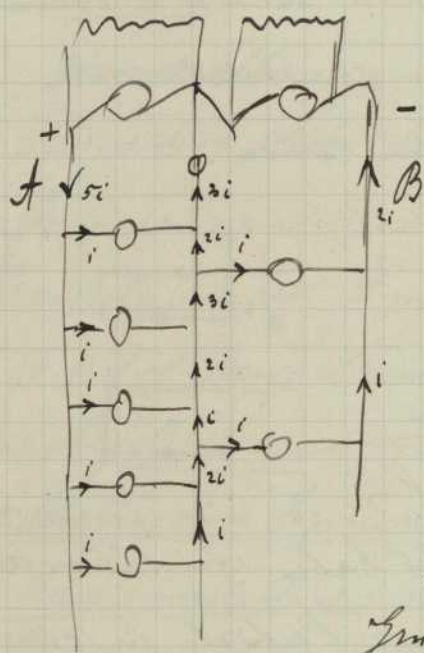 + -
A 5i 3i B
2i 2i
i i
3i
i
2i i
i
i i
2i
i i
i